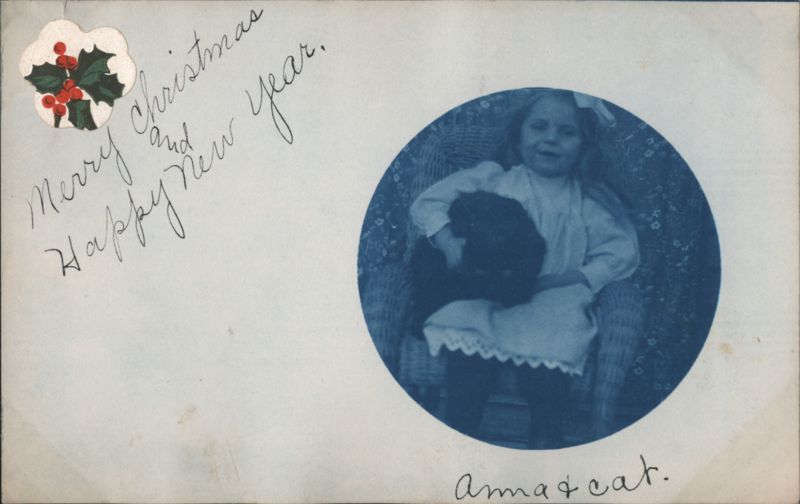 Merry Christmas
and
Happy New Year.
Anna & cat.